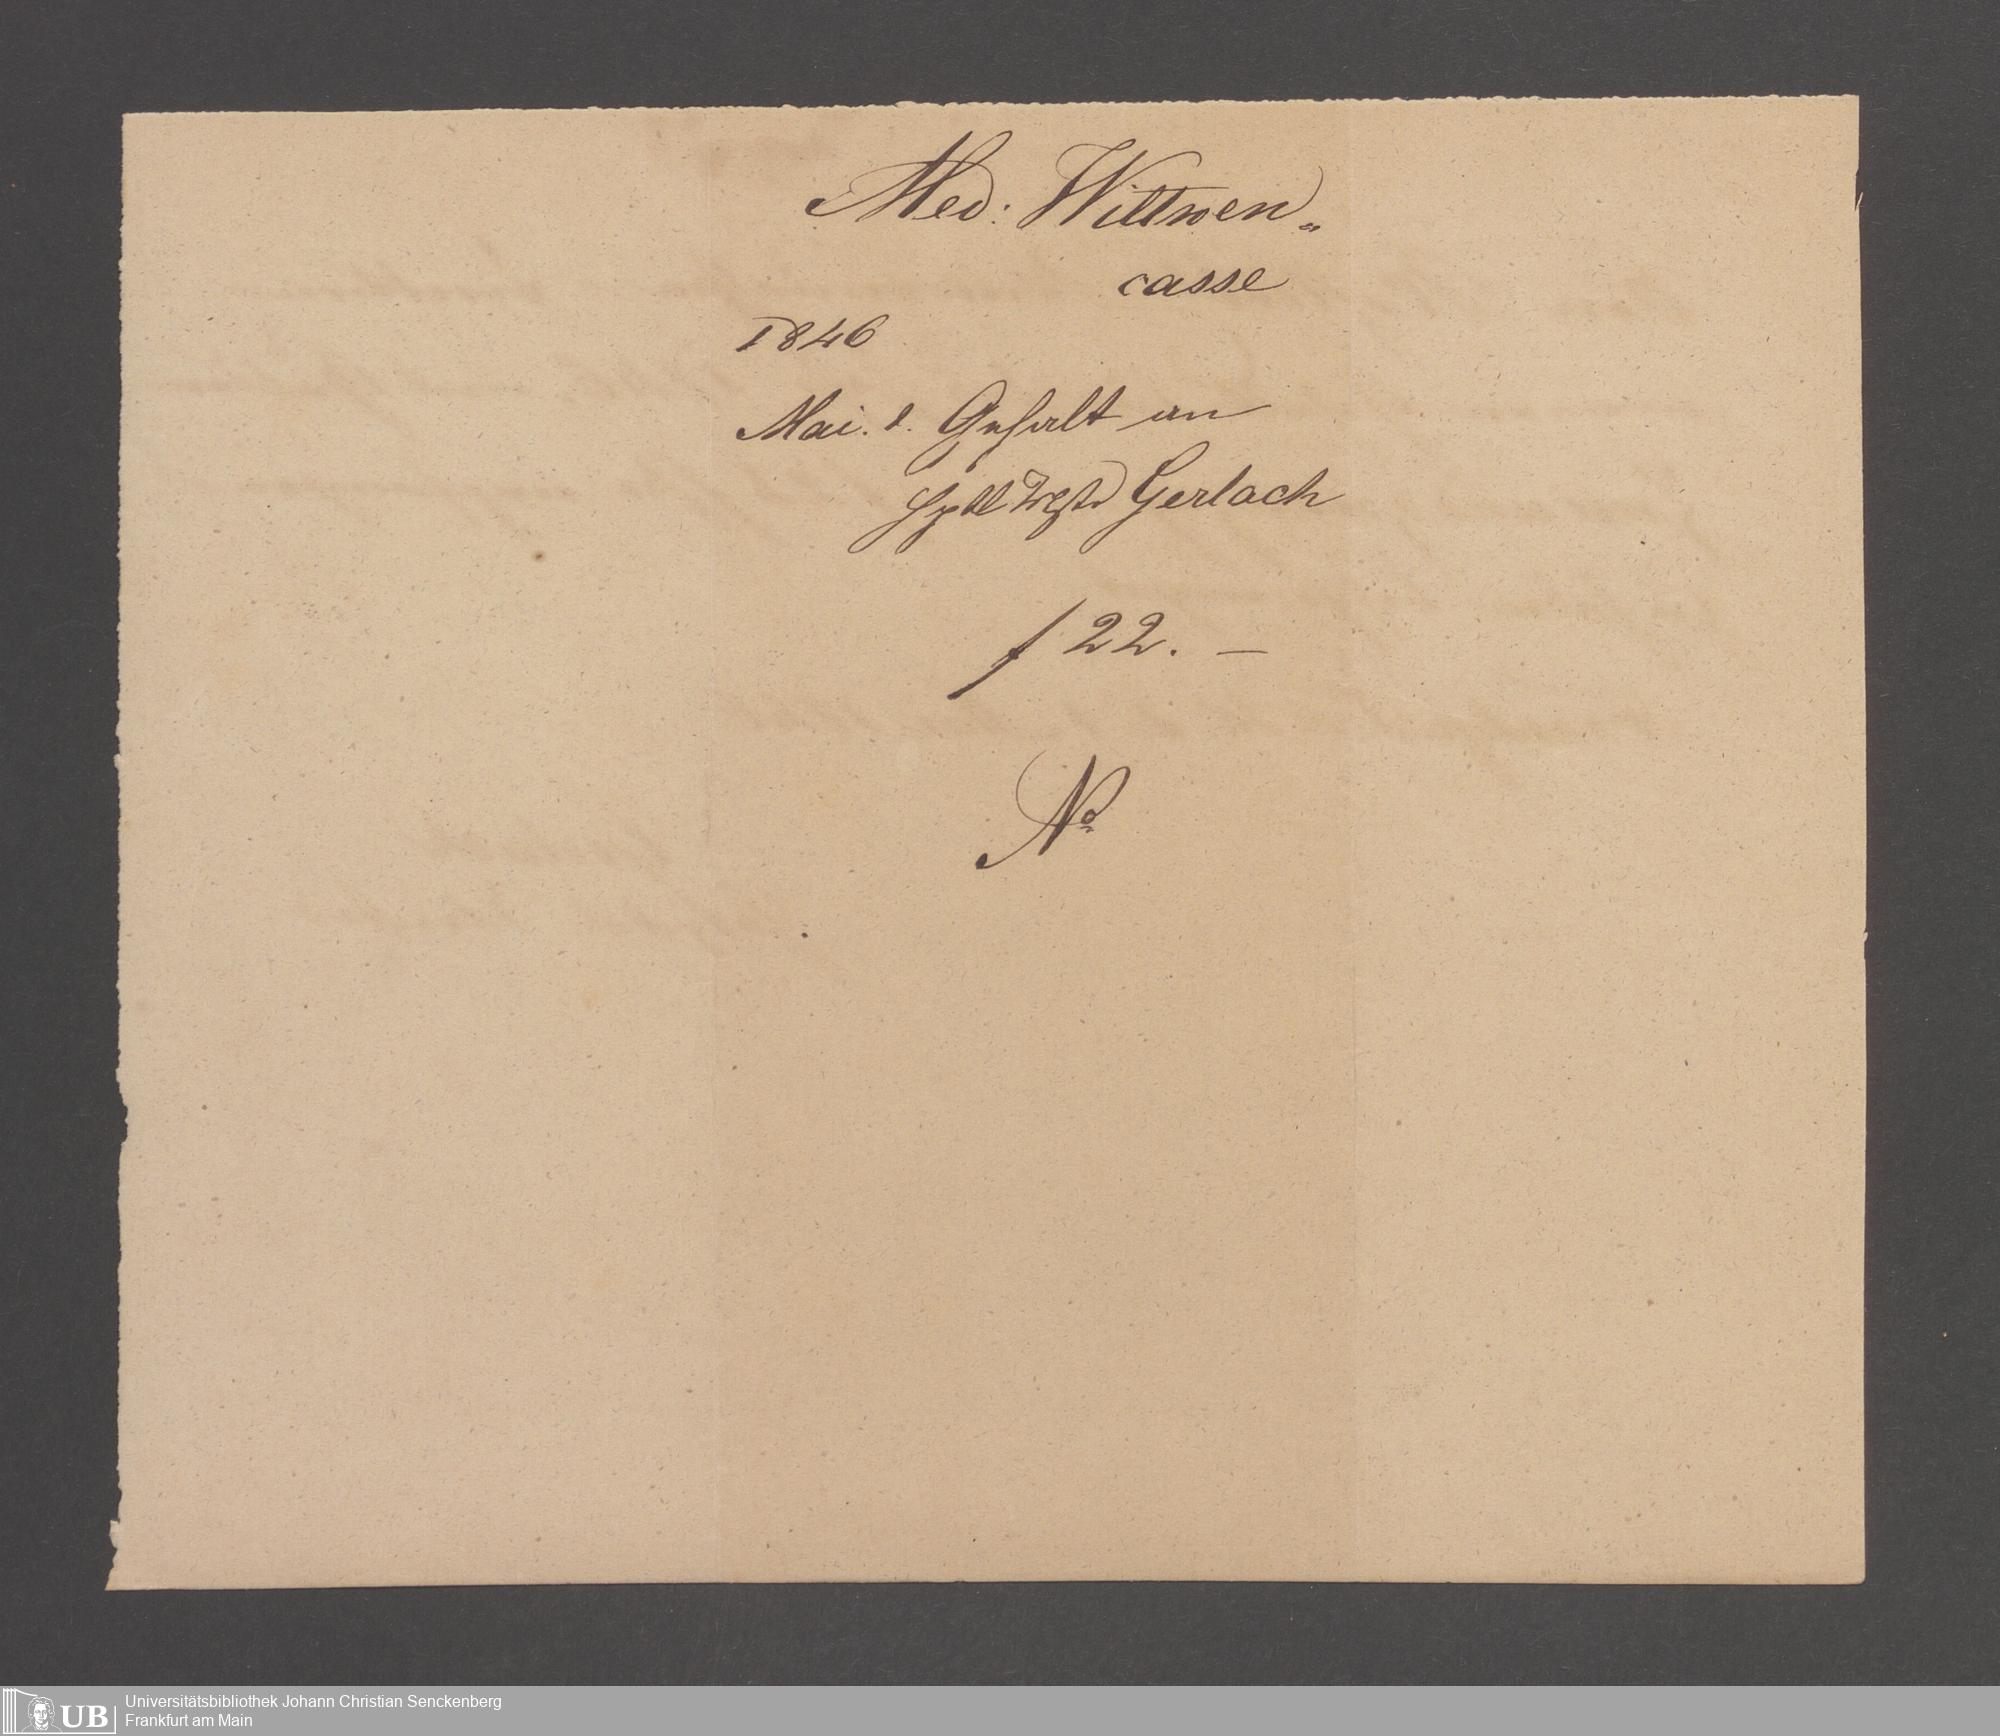 Med: Wittwen„
casse
1846
Mai. 1. Gehalt an
Gerlach
f 22. —
No
UB
Universitätsbibliothek Johann Christian Senckenberg
Frankfurt am Main